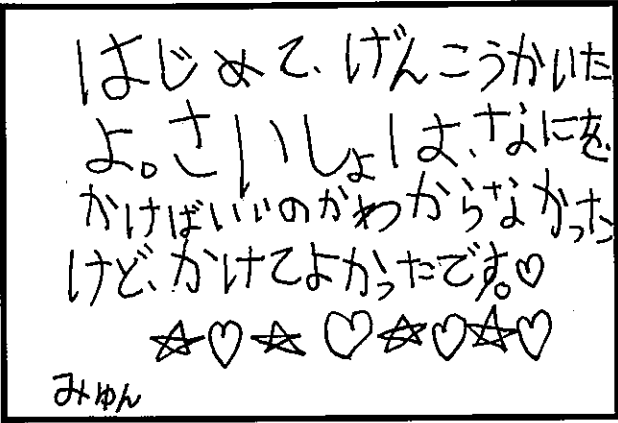 はじめて、げんこうかいた
よ。さいしょは、なにを
かけばいいのかわからなかった
けど、かけてよかったです。♡
☆♡☆♡☆♡☆♡
みゅん